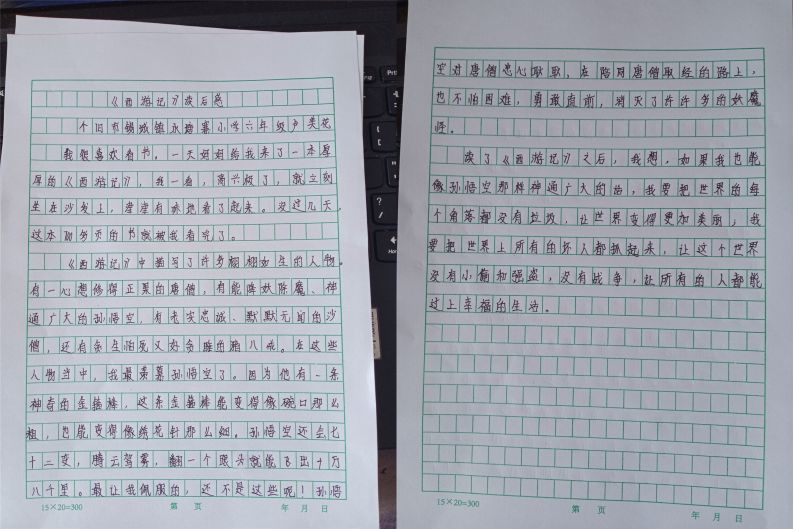 《西游记》读后感
个旧市锡城镇永塘寨小学六年级 卢美花
我很喜欢看书。一天妈妈给我来了一本厚
厚的《西游记》,我一看,高兴极了,就立刻
坐在沙发上,津津有味地看了起来。没过几天,
这本 多页的书就被我看完了。
《西游记》中描写了许多栩栩如生的人物。
有一心想修得正果的唐僧,有能降妖除魔、神
通广大的孙悟空,有老实忠诚、默默无闻的沙
僧,还有贪生怕死又好贪睡的猪八戒。在这些
人物当中,我最羡慕孙悟空了。因为他有一条
神奇的金箍棒,这条金箍棒能变得像碗口那么
粗,也能变得像绣花针那么细。孙悟空还会七
十二变,腾云驾雾,翻一个跟头就能飞出十万
八千里。最让我佩服的,还不是这些呢!孙悟
15×20=300 第 页 年 月 日
空对唐僧忠心耿耿,在陪同唐僧取经的路上,
也不怕困难,勇敢直前,消灭了许许多多的妖魔
怪。
读了《西游记》之后,我想,如果我也能
像孙悟空那样神通广大的话,我要把世界的每
个角落都没有垃圾,让世界变得更加美丽;我
要把世界上所有的坏人都抓起来,让这个世界
没有小偷和强盗,没有战争,让所有的人都能
过上幸福的生活。
15×20=300 第 页 年 月 日